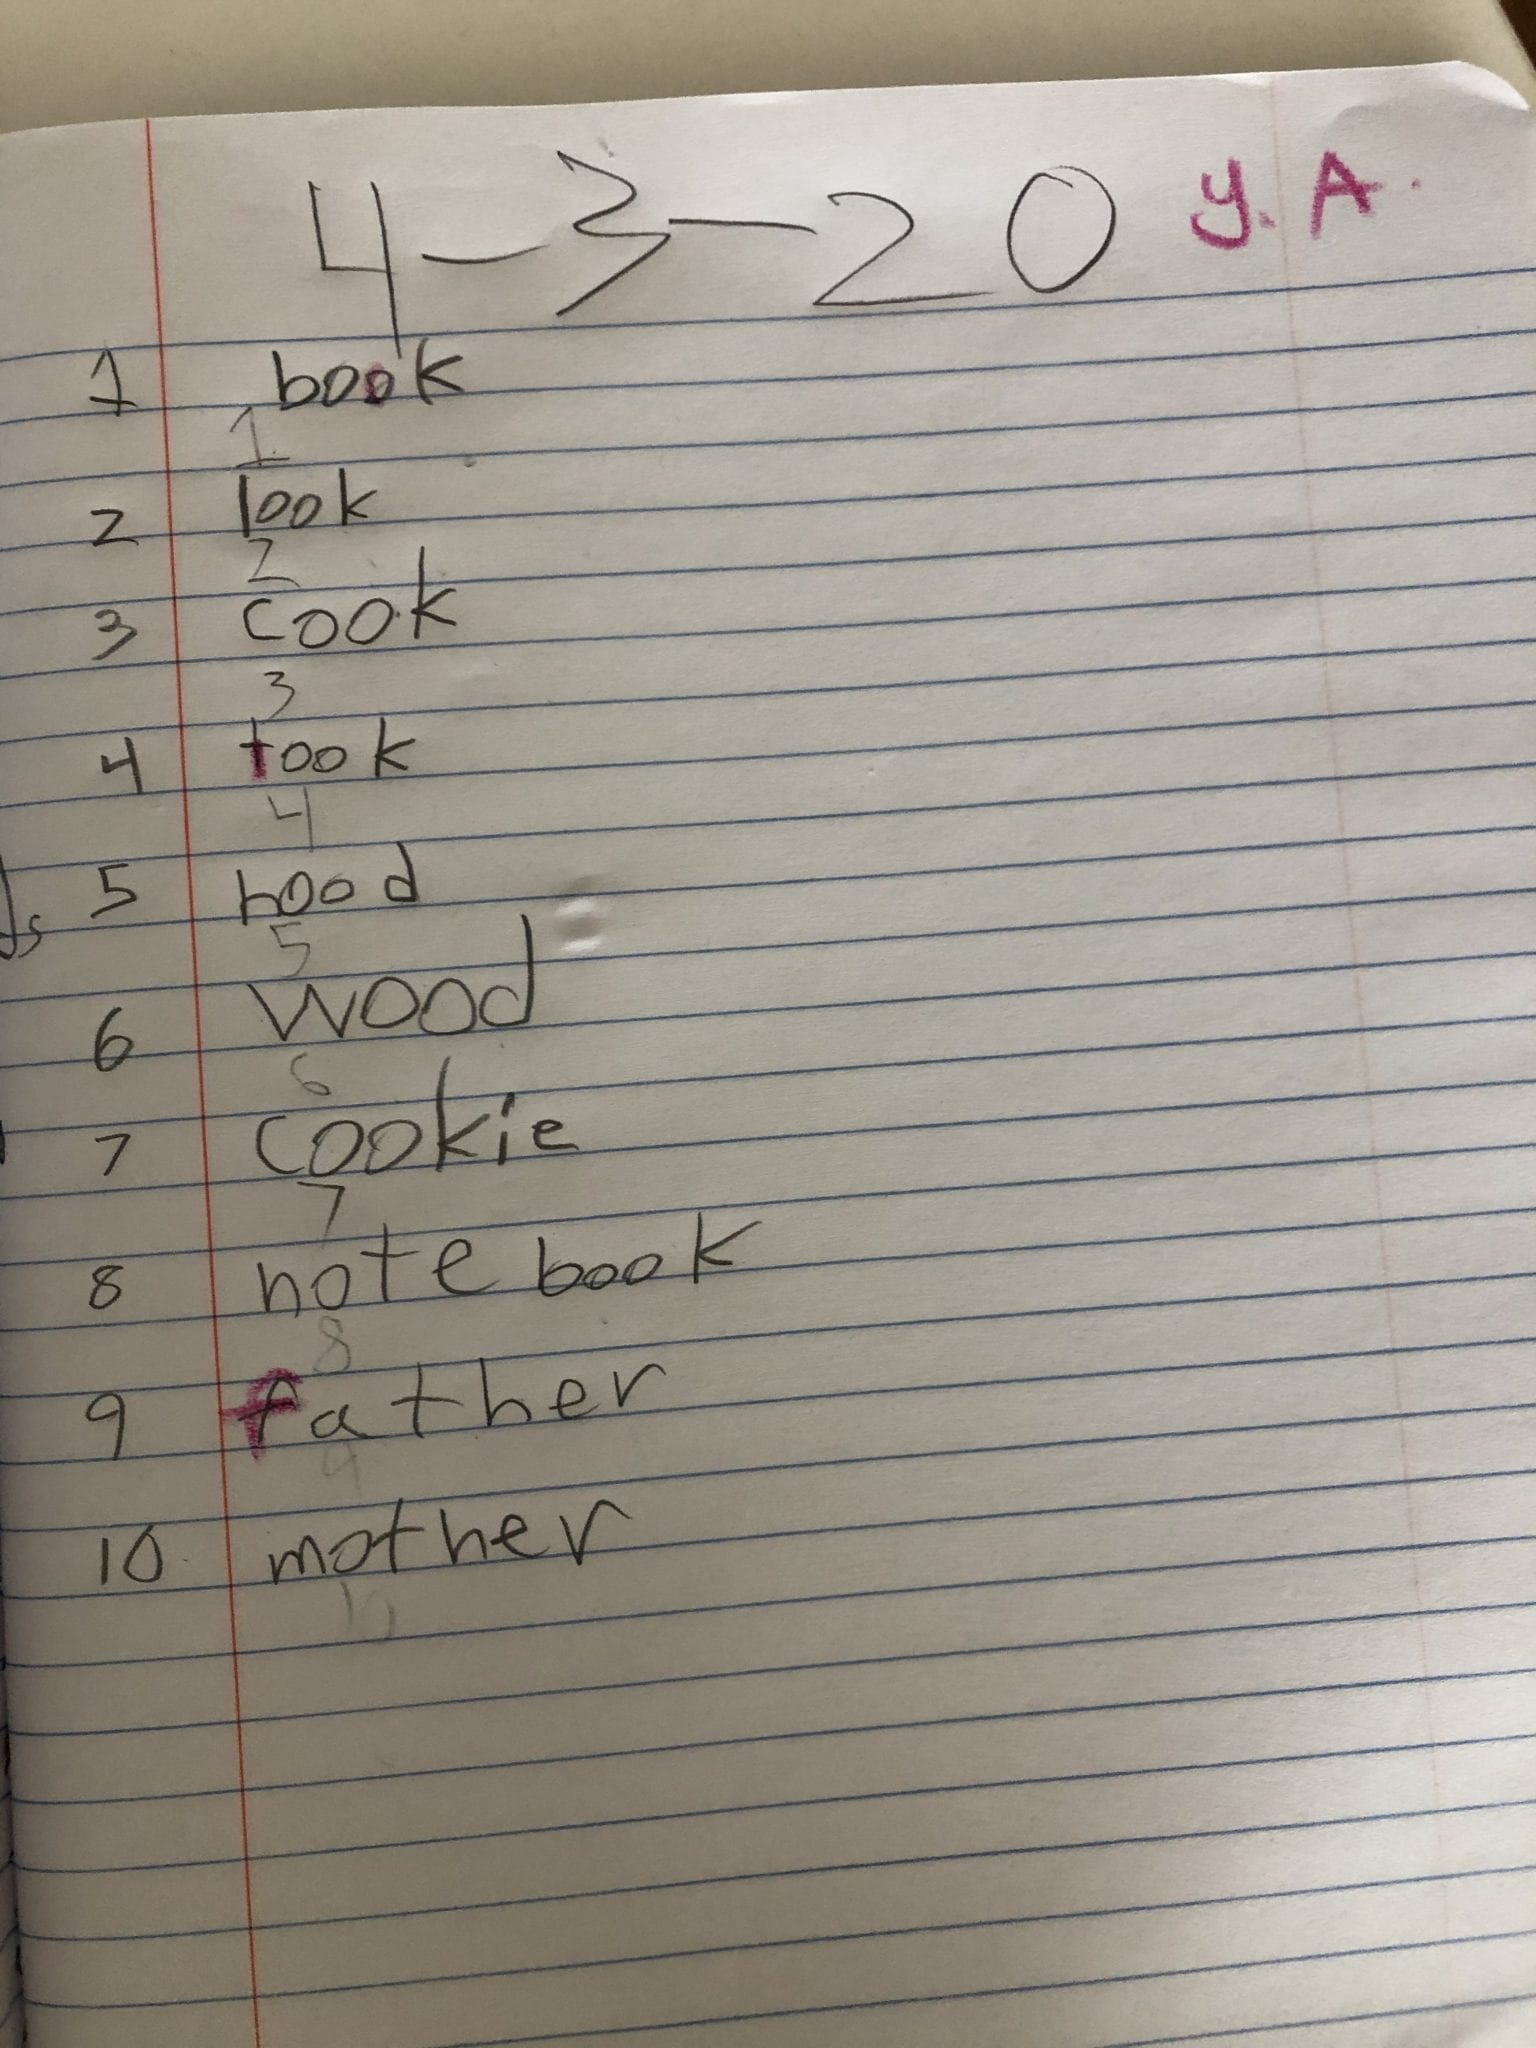 4-3-20 y.A.
1 book
1
2 look
2
3 cook
3
4 took
4
5 hood
5
6 wood
6
7 cookie
7
8 note book
8
9 father
9
10 mother
10